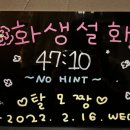 화생설화
47:10
~NO HINT~
탈모짱
-2022. 2. 16. WED